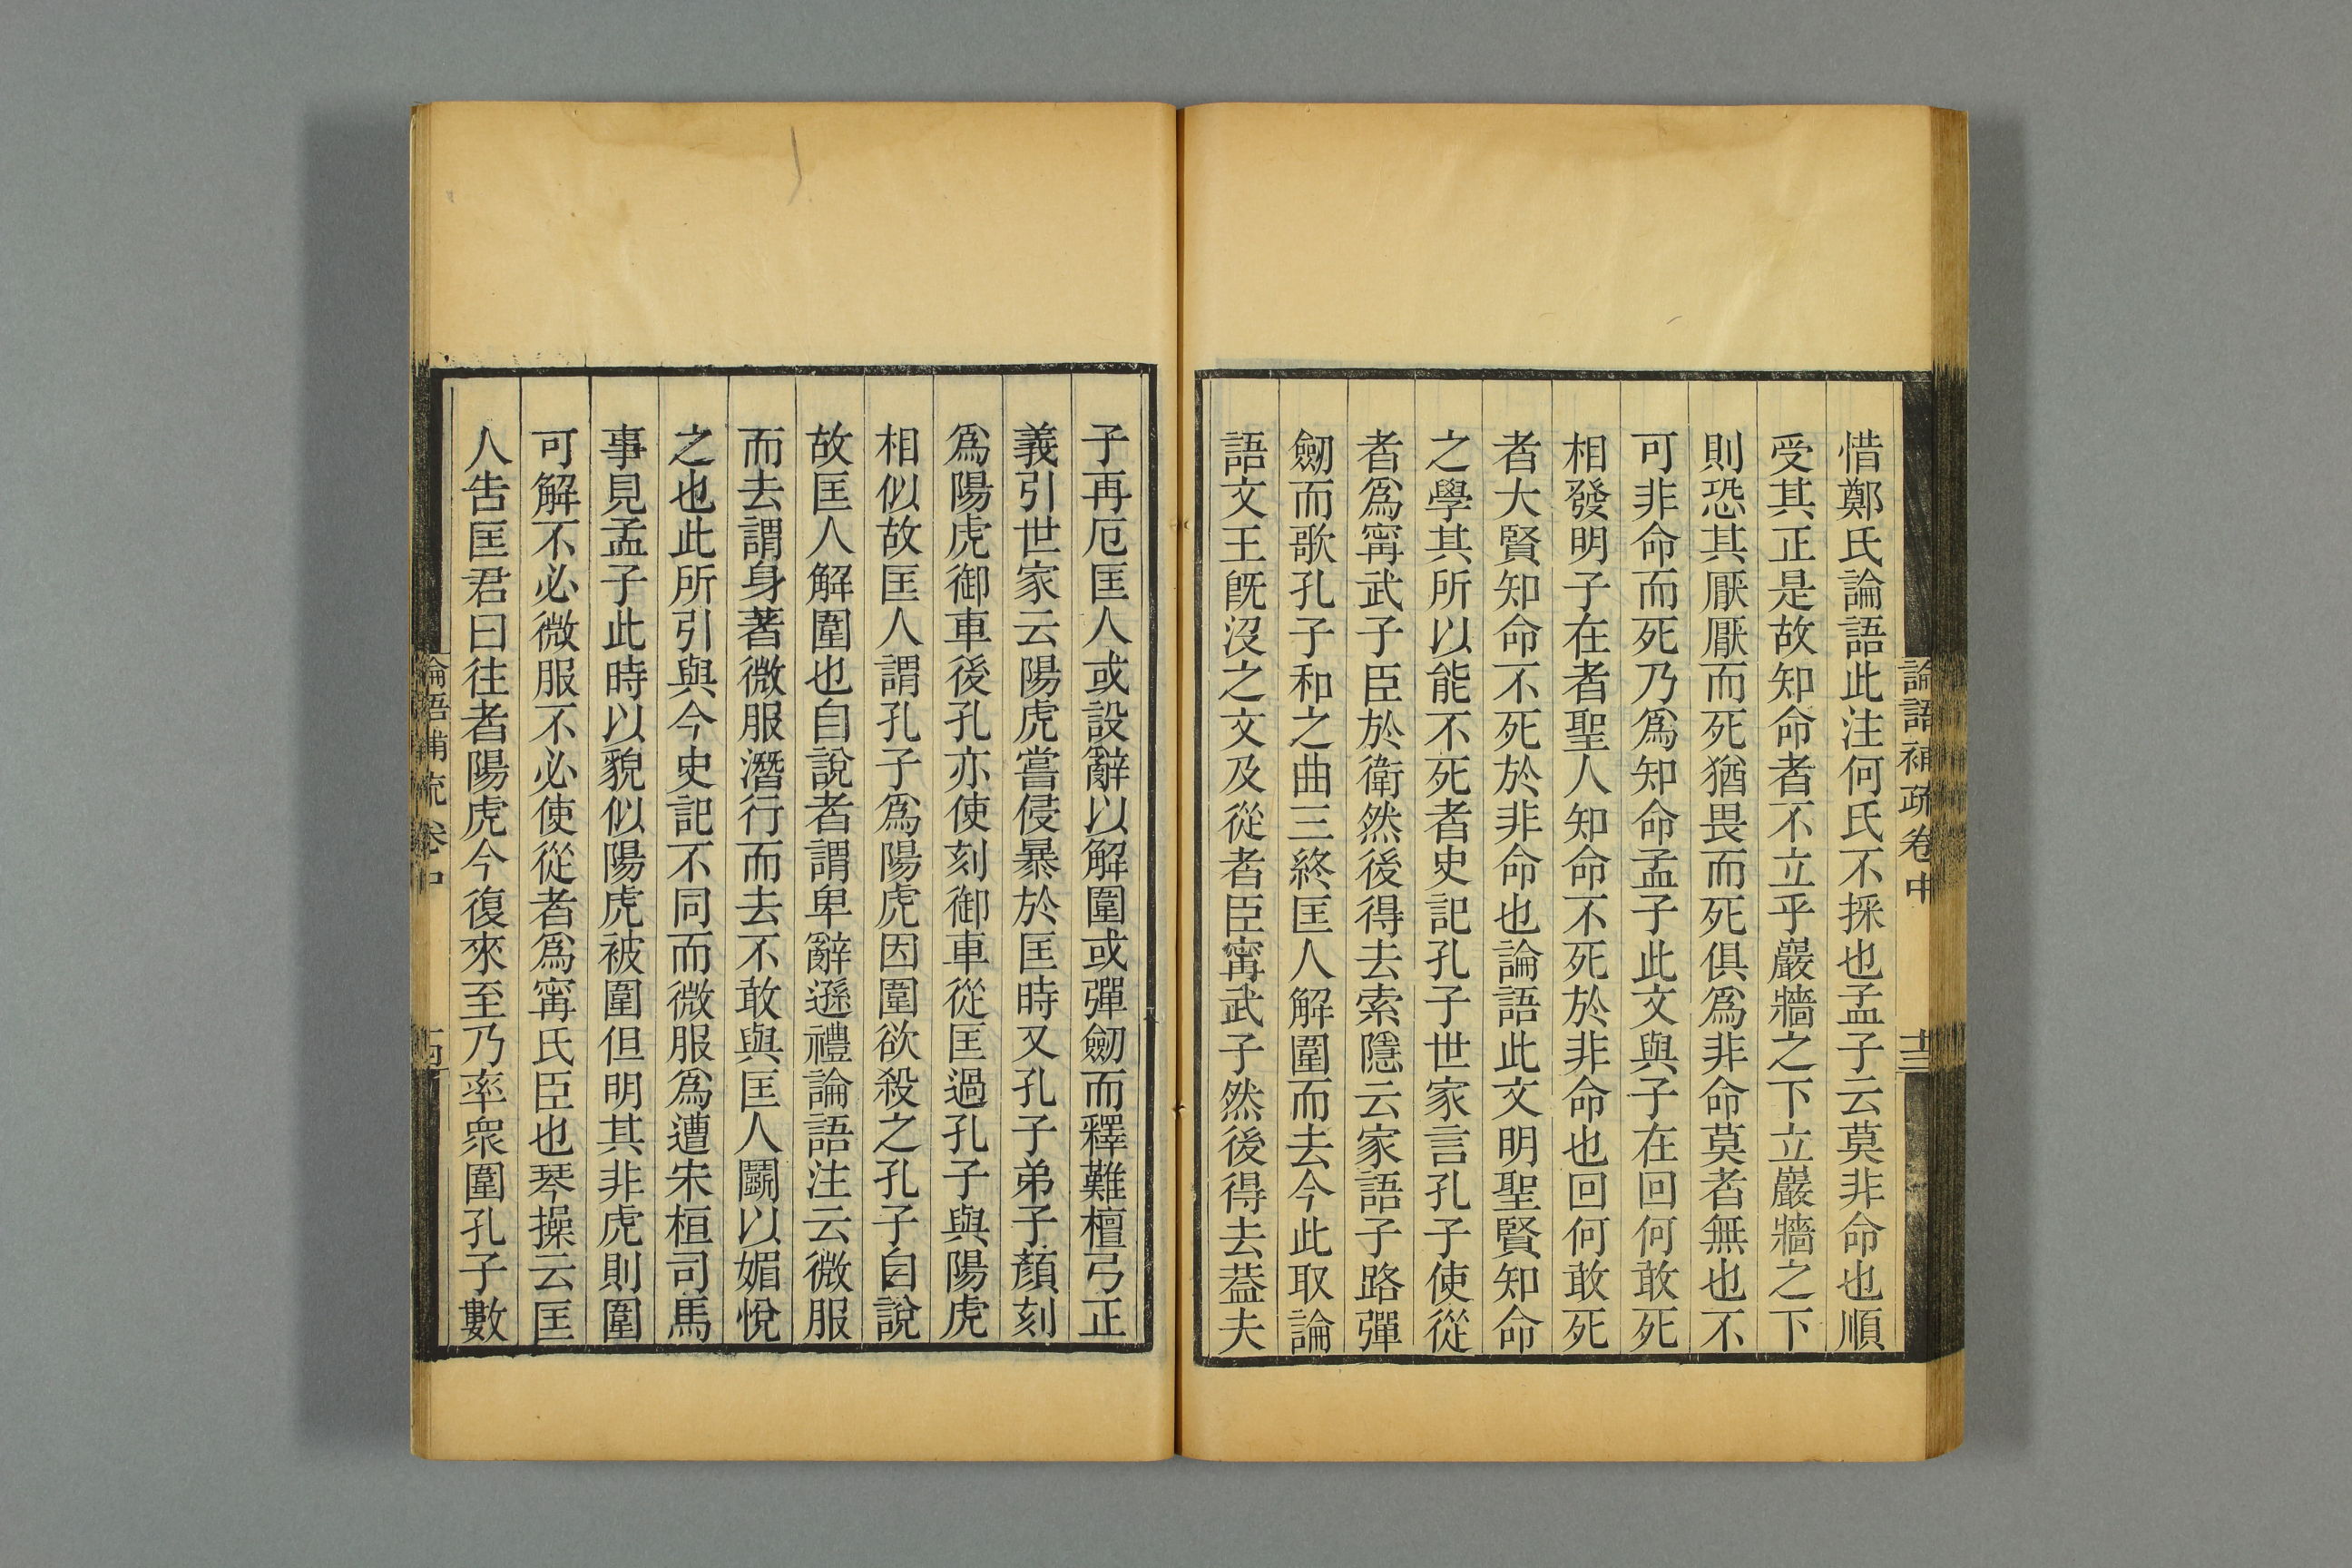 論語補疏卷中
十三
惜鄭氏論語此注何氏不採也孟子云莫非命也順
受其正是故知命者不立乎巖牆之下立巖牆之下
則恐其厭厭而死猶畏而死俱爲非命莫者無也不
可非命而死乃爲知命孟子此文與子在回何敢死
相發明子在者聖人知命不死於非命也回何敢死
者大賢知命不死於非命也論語此文明聖賢知命
之學其所以能不死者史記孔子世家言孔子使從
者爲甯武子臣於衛然後得去索隱云家語子路彈
劒而歌孔子和之曲三終匡人解圍而去今此取論
語文王旣沒之文及從者臣甯武子然後得去葢夫
子再厄匡人或設辭以解圍或彈劒而釋難檀弓正
義引世家云陽虎嘗侵暴於匡時又孔子弟子顏刻
爲陽虎御車後孔亦使刻御車從匡過孔子與陽虎
相似故匡人謂孔子爲陽虎因圍欲殺之孔子自說
故匡人解圍也自說者謂卑辭遜禮論語注云微服
而去謂身著微服潛行而去不敢與匡人鬭以媚悅
之也此所引與今史記不同而微服爲遭宋桓司馬
事見孟子此時以貌似陽虎被圍但明其非虎則圍
可解不必微服不必使從者爲甯氏臣也琴操云匡
人告匡君曰往者陽虎今復來至乃率衆圍孔子數
論語補疏卷中
十四